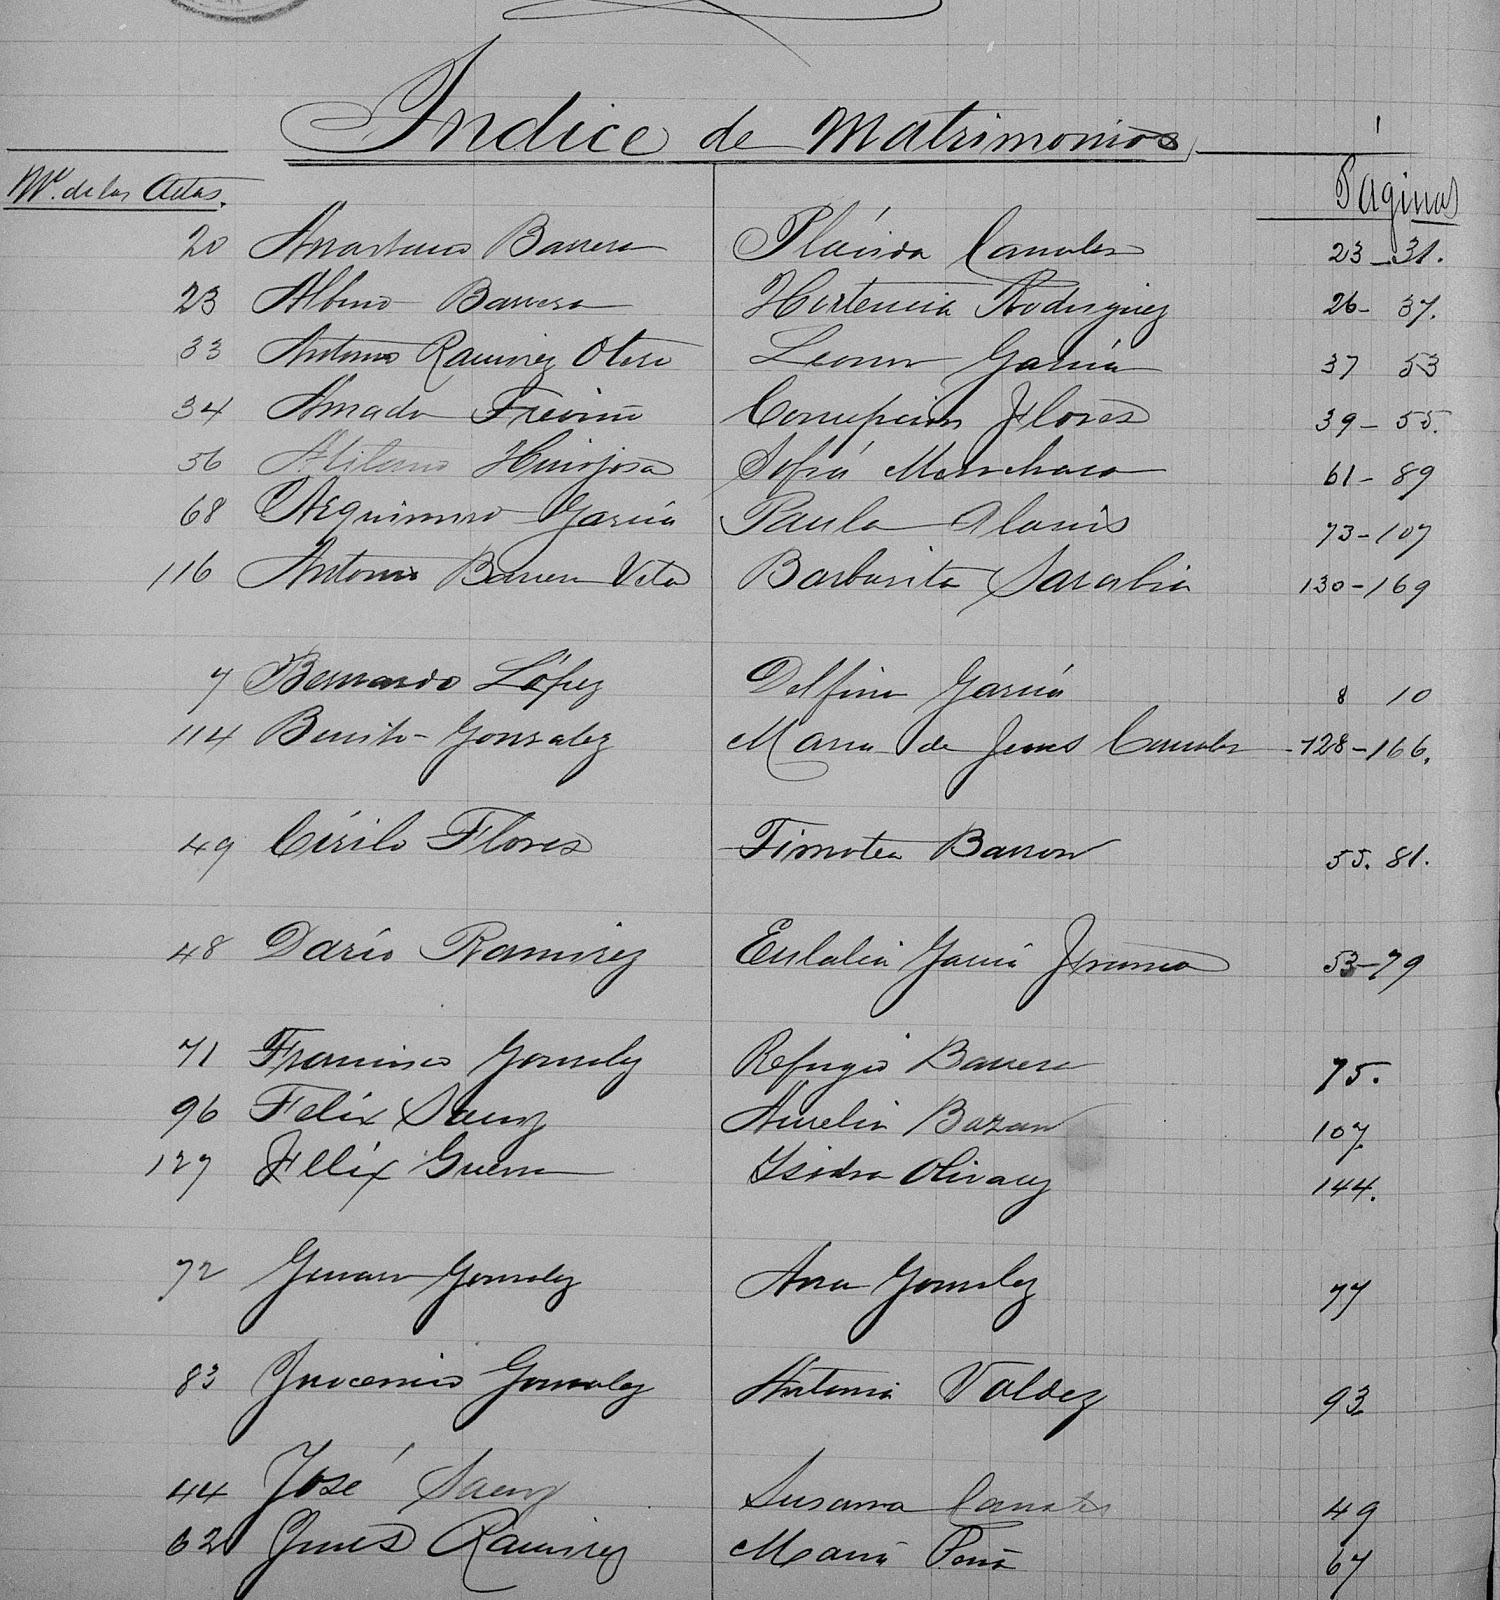 Indice de Matrimonios
Nº. de las Actas. Paginas
20 Anastacio Barrera Plácida Canales 23-31.
23 Albino Barrera Hortencia Rodriguez 26- 37.
33 Antonio Ramirez Otero Leonor García 37 53
34 Amado Treviño Concepcion Flores 39- 55.
56 Atilano Hinojosa Sofia Menchaca 61- 89
68 García Paula Alanis 73-107
116 Antonio Barrera Vela Barbarita Sarabia 130-169
7 Bernardo López Delfina García 8 10
114 Benito Gonzalez Maria de Jesus Canales 128-166.
49 Cirilo Flores Timotea Barron 55. 81.
48 Darío Ramirez Eulalia García 53-79
71 Francisco Gonzalez Refugio Barrera 75.
96 Felix Saenz Aurelia Bazan 107.
127 Félix Guerra Isidra Olivarez 144.
72 Genaro Gonzalez Ana Gonzalez 77
83 Inocencio Gonzalez Antonia Valdez 93
44 José Saenz Susana Canales 49
62 Jesus Ramirez María Peña 67